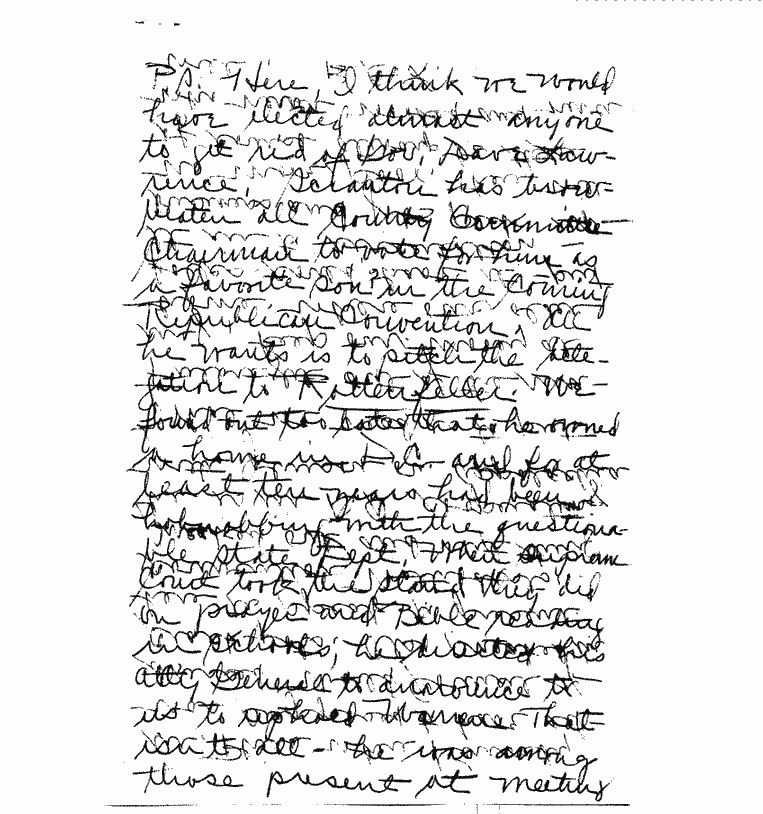 P.S. Here, I think we would
have elected almost anyone
to get rid of Gov. Dave Law-
rence. Scranton has brow-
beaten all County Committee
Chairman to vote for him as
a favorite son in the Coming
Republican Convention, All
he wants is to pitch the dele-
gation to Rottenfeller. We
found out too late that he owned
a home in and for at
least ten years had been
hobnobbing with the questiona-
ble State Dept. When Supreme
Court took the stand they did
on prayer and Bible reading
in schools, he his
atty General to announce to
us to That
isn't all - he was among
those present at meeting